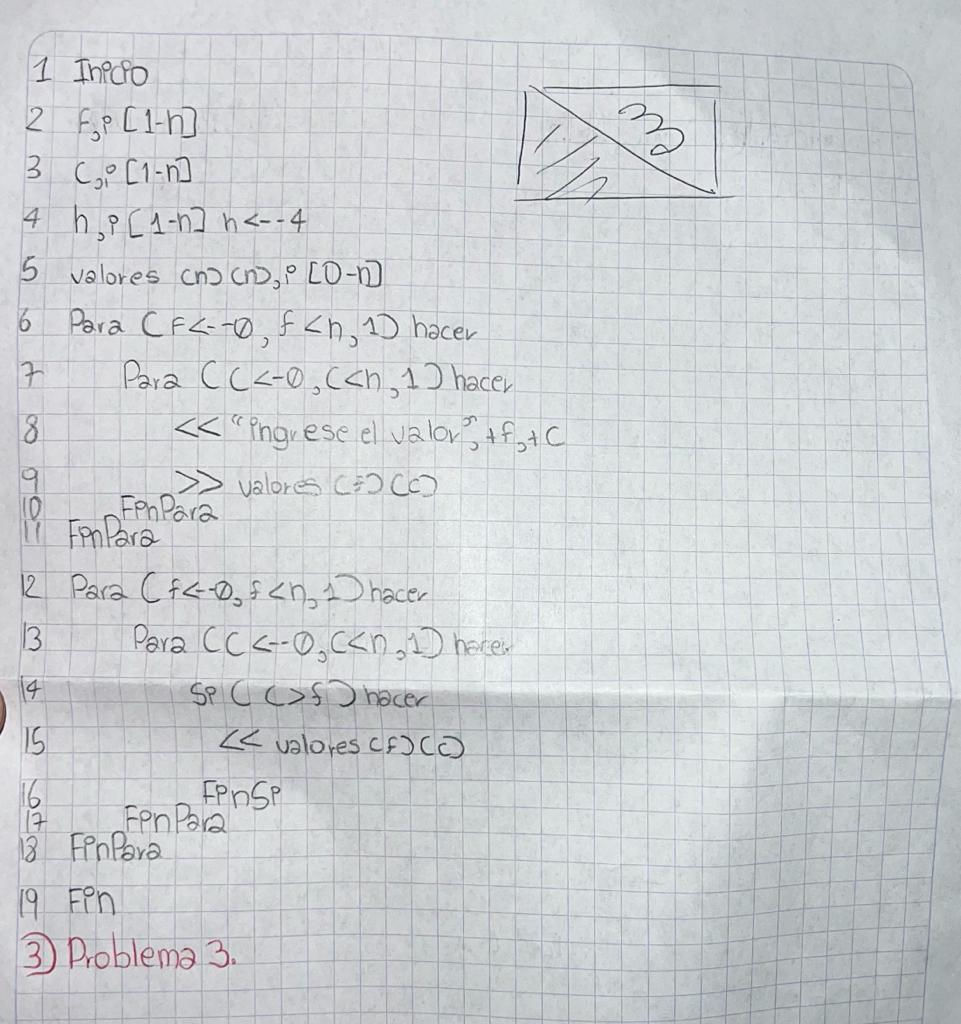 1 Inicio
2 f,i [1-n]
3 C,i [1-n]
4 n,i [1-n] n<--4
5 valores [n][n],i [0-n]
6 Para (f<--0, f<n, 1) hacer
7 Para (C<-0, C<n, 1) hacer
8 << "ingrese el valor", +f,+C
9 >> valores [f][C]
10 FinPara
11 FinPara
12 Para (f<-0, f<n, 1) hacer
13 Para (C<--0, C<n, 1) hacer
14 Si (C>f) hacer
15 << valores [f][C]
16 FinSi
17 FinPara
18 FinPara
19 Fin
3) Problema 3.